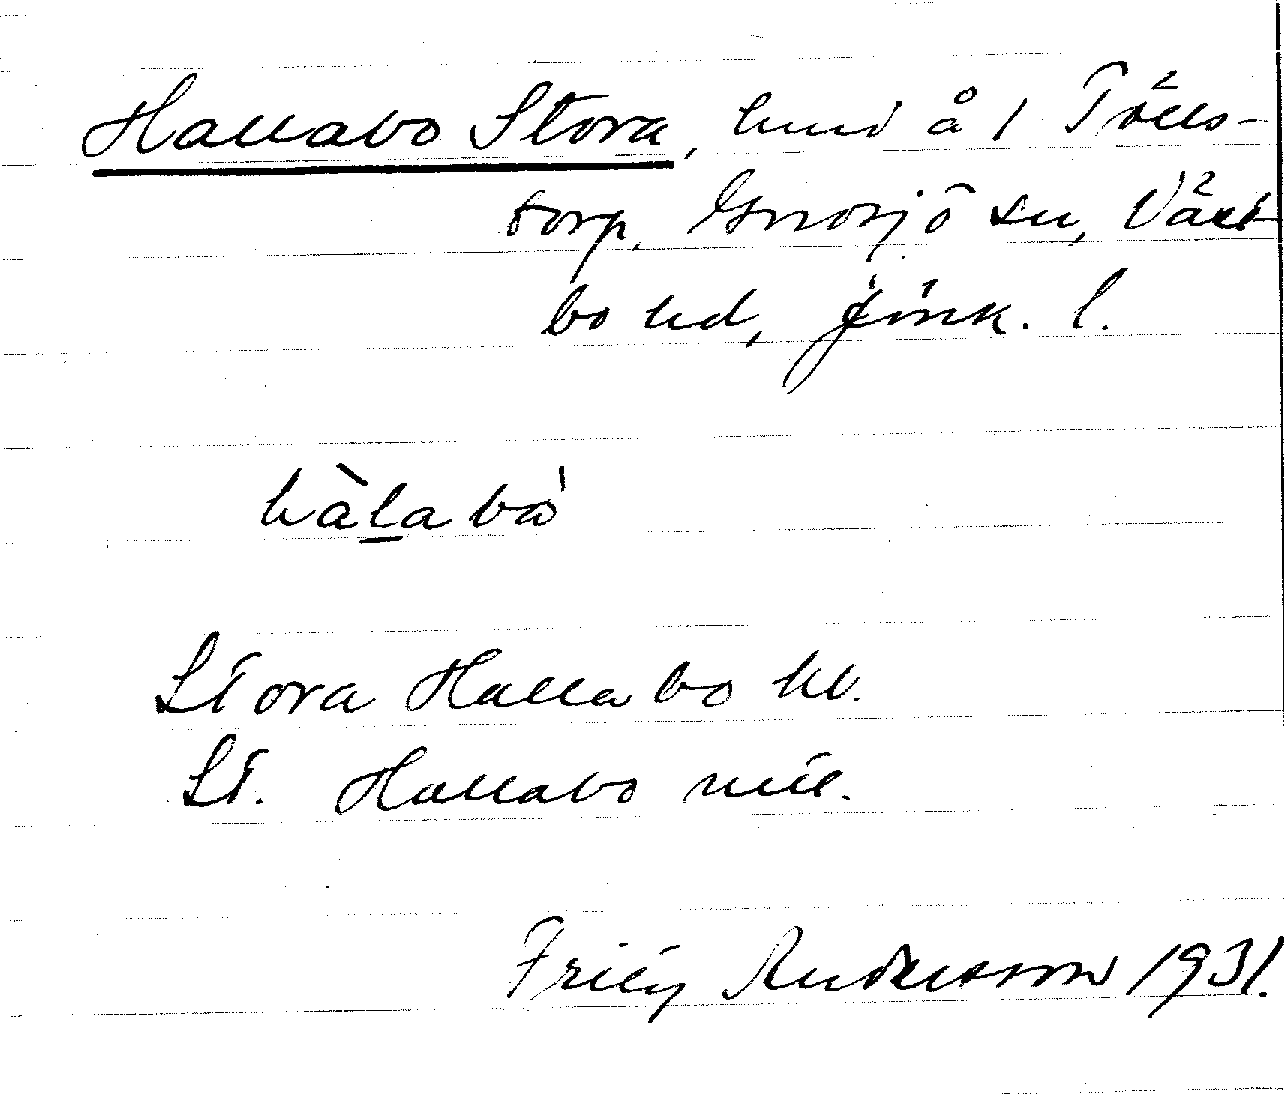 Hallabo Stora, hmd å 1 Tölls-
torp, Gnosjö sn, Väst
bo hd, Jönk. l.
hàlabò
Stora Hallabo kb.
St. Hallabo mil.
Andersson 1931.